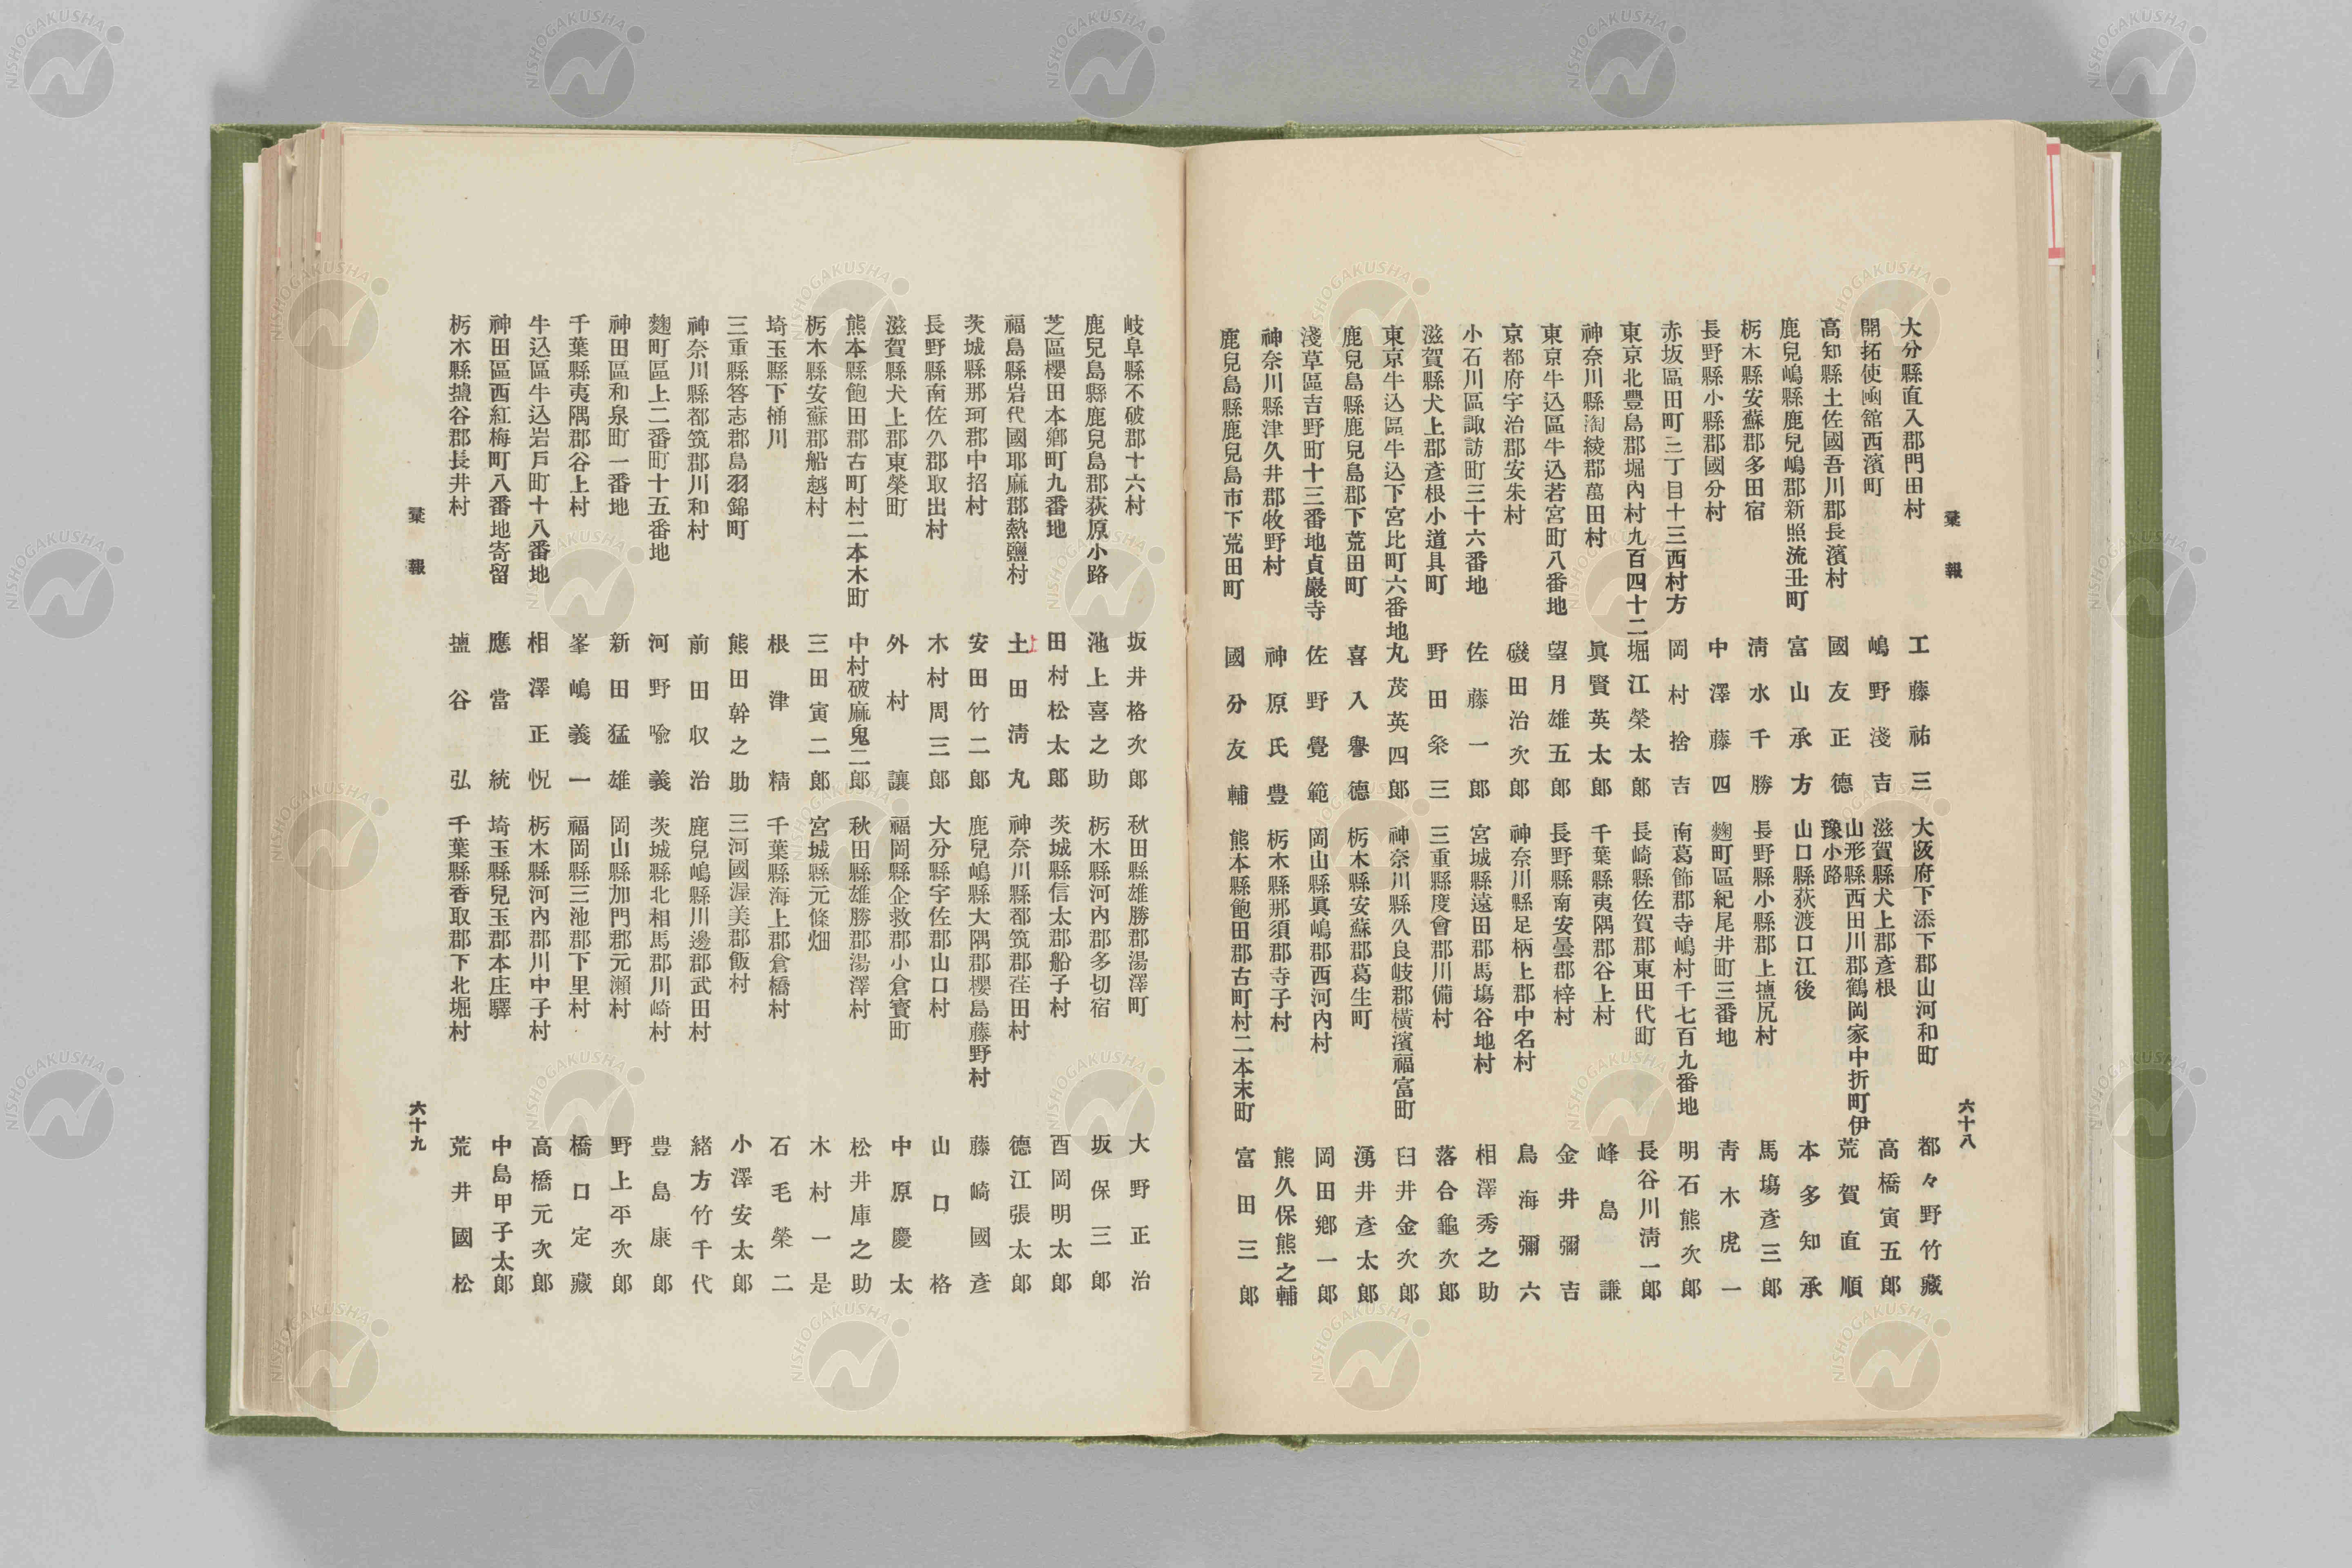 彙報
六十八
大分縣直入郡門田村 工藤祐三
開拓使凾舘西濱町 嶋野淺吉
高知縣土佐國吾川郡長濱村 國友正德
鹿兒嶋縣鹿兒嶋郡新照流丑町 富山承方
栃木縣安蘇郡多田宿 淸水千勝
長野縣小縣郡國分村 中澤藤四
赤坂區田町三丁目十三西村方 岡村捨吉
東京北豐島郡堀內村九百四十二 堀江榮太郎
神奈川縣淘綾郡萬田村 眞賢英太郎
東京牛込區牛込若宮町八番地 望月雄五郎
京都府宇治郡安朱村 磯田治次郎
小石川區諏訪町三十六番地 佐藤一郎
滋賀縣犬上郡彥根小道具町 野田粂三
東京牛込區牛込下宮比町六番地 丸茂英四郎
鹿兒島縣鹿兒島郡下荒田町 喜入譽德
淺草區吉野町十三番地貞巖寺 佐野覺範
神奈川縣津久井郡牧野村 神原氏豊
鹿兒島縣鹿兒島市下荒田町 國分友輔
大阪府下添下郡山河和町 都々野竹藏
滋賀縣犬上郡彥根 高橋寅五郎
山形縣西田川郡鶴岡家中折町伊豫小路 荒賀直順
山口縣荻渡口江後 本多知承
長野縣小縣郡上塩尻村 馬塲彥三郎
麴町區紀尾井町三番地 靑木虎一
南葛飾郡寺嶋村千七百九番地 明石熊次郎
長崎縣佐賀郡東田代町 長谷川淸一郎
千葉縣夷隅郡谷上村 峰島謙
長野縣南安曇郡梓村 金井彌吉
神奈川縣足柄上郡中名村 鳥海彌六
宮城縣遠田郡馬塲谷地村 相澤秀之助
三重縣度會郡川備村 落合龜次郎
神奈川縣久良岐郡橫濱福富町 臼井金次郎
栃木縣安蘇郡葛生町 湧井彥太郎
岡山縣眞嶋郡西河內村 岡田鄕一郎
栃木縣那須郡寺子村 熊久保熊之輔
熊本縣飽田郡古町村二本末町 富田三郎
岐阜縣不破郡十六村 坂井格次郎
鹿兒島縣鹿兒島郡荻原小路 池上喜之助
芝區櫻田本鄕町九番地 田村松太郎
福島縣岩代國耶麻郡熱鹽村 土田淸丸
茨城縣那珂郡中招村 安田竹二郎
長野縣南佐久郡取出村 木村周三郎
滋賀縣犬上郡東榮町 外村讓
熊本縣飽田郡古町村二本木町 中村破麻鬼二郎
栃木縣安蘇郡船越村 三田寅二郎
埼玉縣下桶川 根津精
三重縣答志郡島羽錦町 熊田幹之助
神奈川縣都筑郡川和村 前田収治
麴町區上二番町十五番地 河野喩義
神田區和泉町一番地 新田猛雄
千葉縣夷隅郡谷上村 峯嶋義一
牛込區牛込岩戸町十八番地 相澤正怳
神田區西紅梅町八番地寄留 應當統
栃木縣塩谷郡長井村 塩谷弘
秋田縣雄勝郡湯澤町 大野正治
栃木縣河內郡多切宿 坂保三郎
茨城縣信太郡船子村 酉岡明太郎
神奈川縣都筑郡荏田村 德江張太郎
鹿兒嶋縣大隅郡櫻島藤野村 藤崎國彥
大分縣宇佐郡山口村 山口格
福岡縣企救郡小倉寳町 中原慶太
秋田縣雄勝郡湯澤村 松井庫之助
宮城縣元條畑 木村一是
千葉縣海上郡倉橋村 石毛榮二
三河國渥美郡飯村 小澤安太郎
鹿兒嶋縣川邊郡武田村 緖方竹千代
茨城縣北相馬郡川崎村 豊島康郎
岡山縣加門郡元瀨村 野上平次郎
福岡縣三池郡下里村 橋口定藏
栃木縣河內郡川中子村 高橋元次郎
埼玉縣兒玉郡本庄驛 中島甲子太郎
千葉縣香取郡下北堀村 荒井國松
彙報
六十九